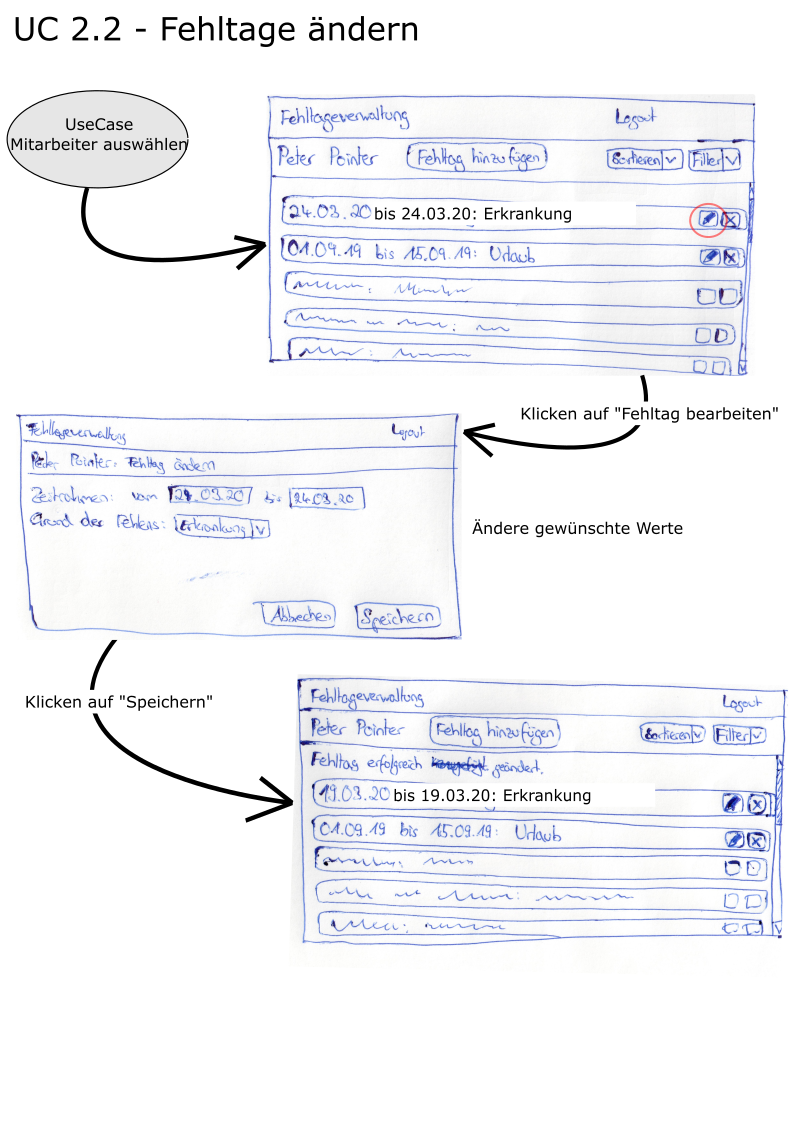 UC 2.2 - Fehltage ändern
UseCase
Mitarbeiter auswählen
Fehltageverwaltung Logout
Peter Pointer Fehltag hinzufügen Sortieren Filter
24.03.20 bis 24.03.20: Erkrankung
01.09.19 bis 15.09.19: Urlaub
Klicken auf "Fehltag bearbeiten"
Fehltageverwaltung Logout
Peter Pointer: Fehltag ändern
Zeitrahmen: vom 24.03.20 bis 24.03.20
Grund des Fehlens: Erkrankung
Ändere gewünschte Werte
Abbrechen Speichern
Klicken auf "Speichern"
Fehltageverwaltung Logout
Peter Pointer Fehltag hinzufügen Sortieren Filter
Fehltag erfolgreich geändert.
19.03.20 bis 19.03.20: Erkrankung
01.09.19 bis 15.09.19: Urlaub